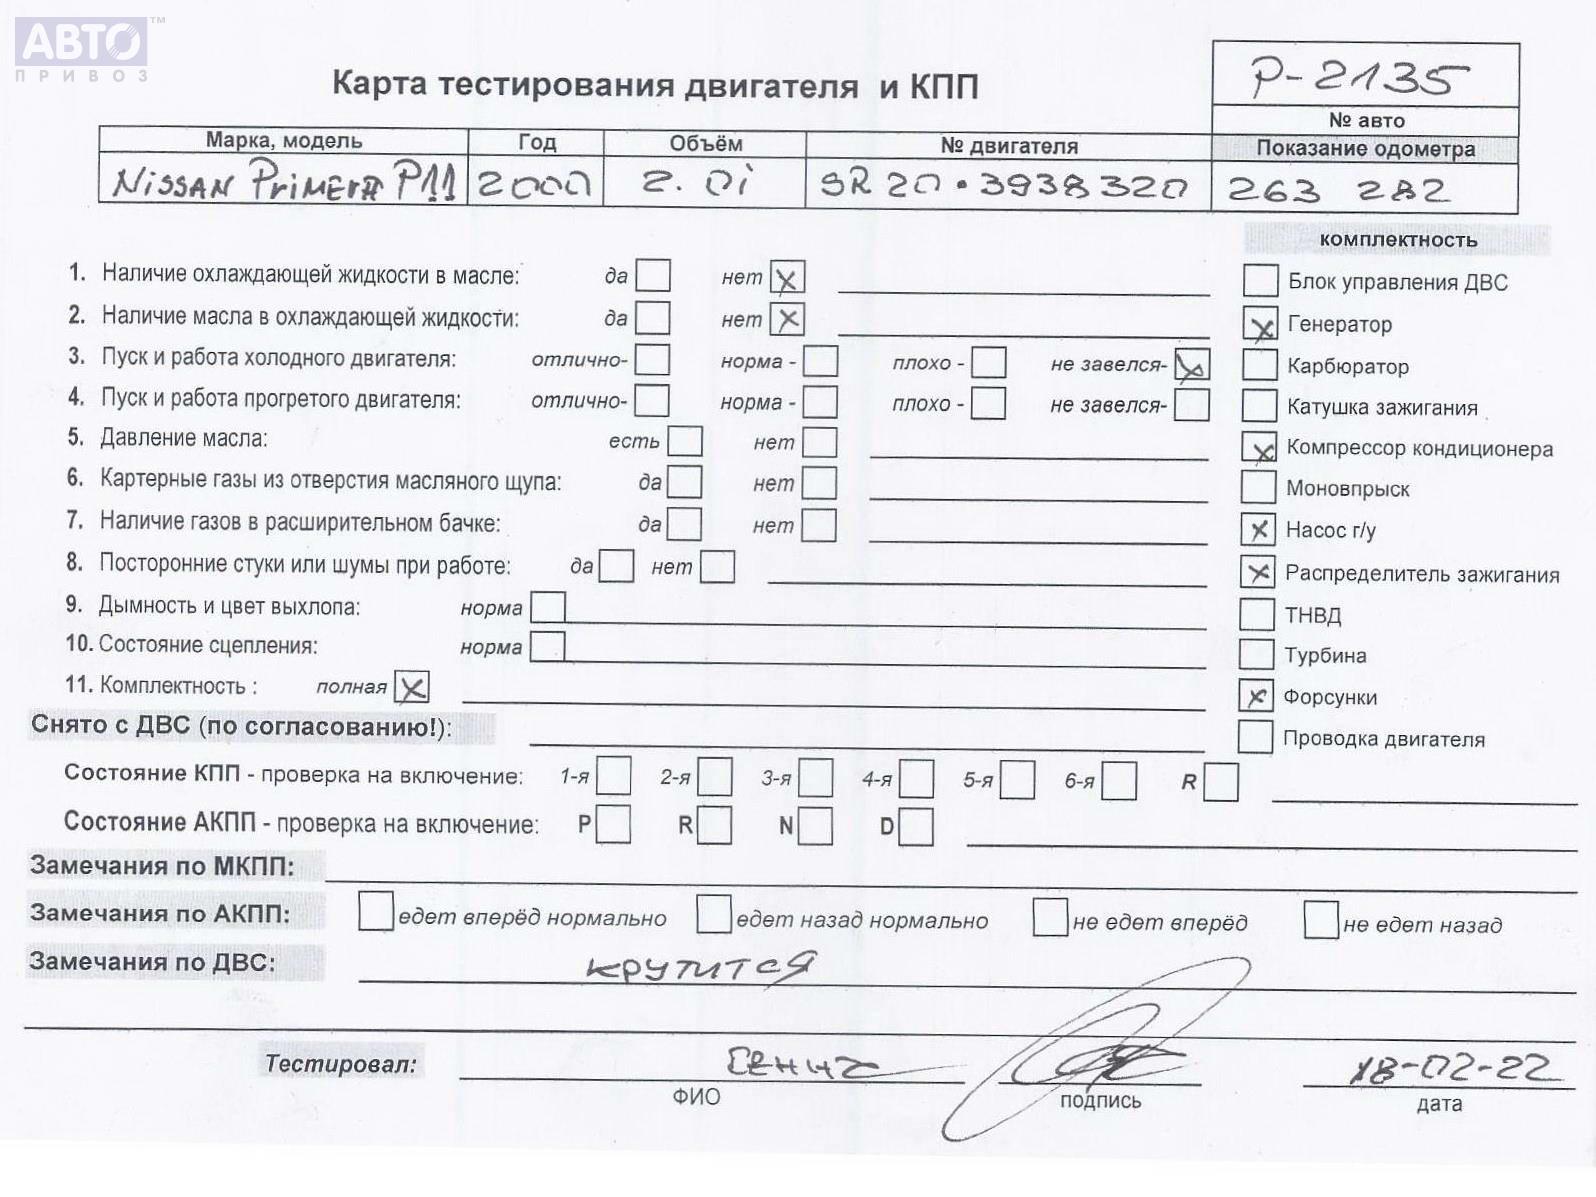 АВТО™
ПРИВОЗ
Карта тестирования двигателя и КПП
P-2135
№ авто
Марка, модель Год Объём № двигателя Показание одометра
Nissan Primera P11 2000 2.0i SR20.3938320 263 282
комплектность
1. Наличие охлаждающей жидкости в масле: да нет x
Блок управления ДВС
2. Наличие масла в охлаждающей жидкости: да нет x
x Генератор
3. Пуск и работа холодного двигателя: отлично- норма - плохо - не завелся- x
Карбюратор
4. Пуск и работа прогретого двигателя: отлично- норма - плохо - не завелся-
Катушка зажигания
5. Давление масла: есть нет
x Компрессор кондиционера
6. Картерные газы из отверстия масляного щупа: да нет
Моновпрыск
7. Наличие газов в расширительном бачке: да нет
x Насос г/у
8. Посторонние стуки или шумы при работе: да нет
x Распределитель зажигания
9. Дымность и цвет выхлопа: норма
ТНВД
10. Состояние сцепления: норма
Турбина
11. Комплектность : полная x
x Форсунки
Снято с ДВС (по согласованию!):
Проводка двигателя
Состояние КПП - проверка на включение: 1-я 2-я 3-я 4-я 5-я 6-я R
Состояние АКПП - проверка на включение: P R N D
Замечания по МКПП:
Замечания по АКПП: едет вперёд нормально едет назад нормально не едет вперёд не едет назад
Замечания по ДВС: крутится
Тестировал: 18-02-22
ФИО подпись дата